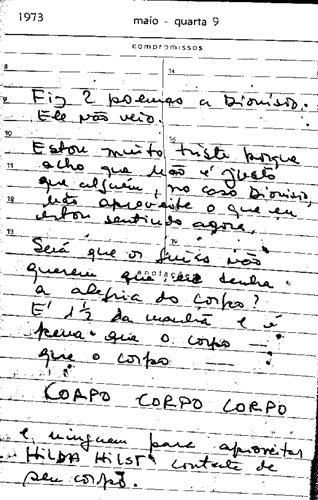 1973 maio - quarta 9
compromissos
8 14
Fiz 2 poemas a Dionísio.
9
Ele não veio.
10 16
Estou muito triste porque
11 acho que não é justo
que alguém, no caso Dionísio,
12 não aproveite o que eu
estou sentindo agora.
13 19
Será que os não
anotações
querem que eu tenha
a alegria do corpo?
É 1 ½ da manhã e é
pena que o corpo —
que o corpo —
CORPO CORPO CORPO
e ninguém para aproveitar
HILDA HILST contente de
seu corpo.